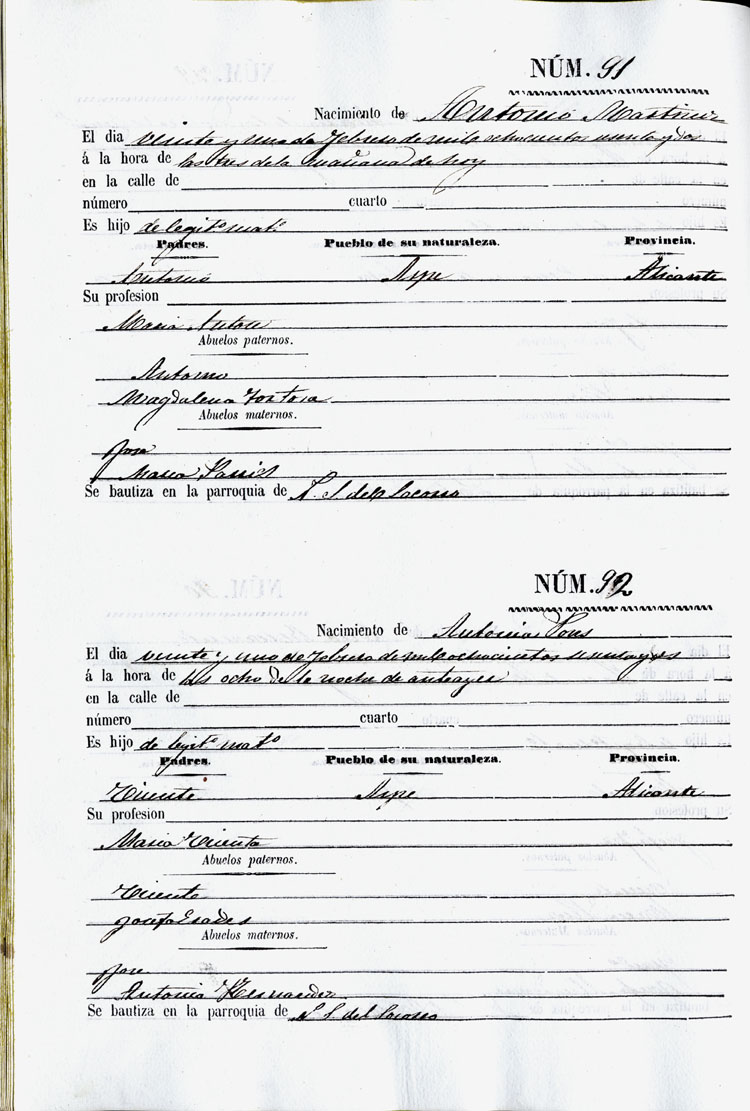 NÚM. 91
Nacimiento de Antonio Martinez
El dia veinte y uno de Febrero de mil ochocientos sesenta y dos
á la hora de las tres de la mañana de hoy
en la calle de
número cuarto
Es hijo de legit.º mat.º
Padres. Pueblo de su naturaleza. Provincia.
Antonio Aspe Alicante
Su profesion
Maria Anton
Abuelos paternos.
Antonio
Magdalena Tortosa
Abuelos maternos.
Jose
Maria
Se bautiza en la parroquia de N. S. del Socorro
NÚM. 92
Nacimiento de Antonia Pons
El dia veinte y uno de Febrero de mil ochocientos sesenta y dos
á la hora de las ocho de la noche de anteayer
en la calle de
número cuarto
Es hijo de legit.º mat.º
Padres. Pueblo de su naturaleza. Provincia.
Vicente Aspe Alicante
Su profesion
Maria Vicenta
Abuelos paternos.
Vicente
Josefa
Abuelos maternos.
Jose
Antonia Hernandez
Se bautiza en la parroquia de N. S. del Socorro